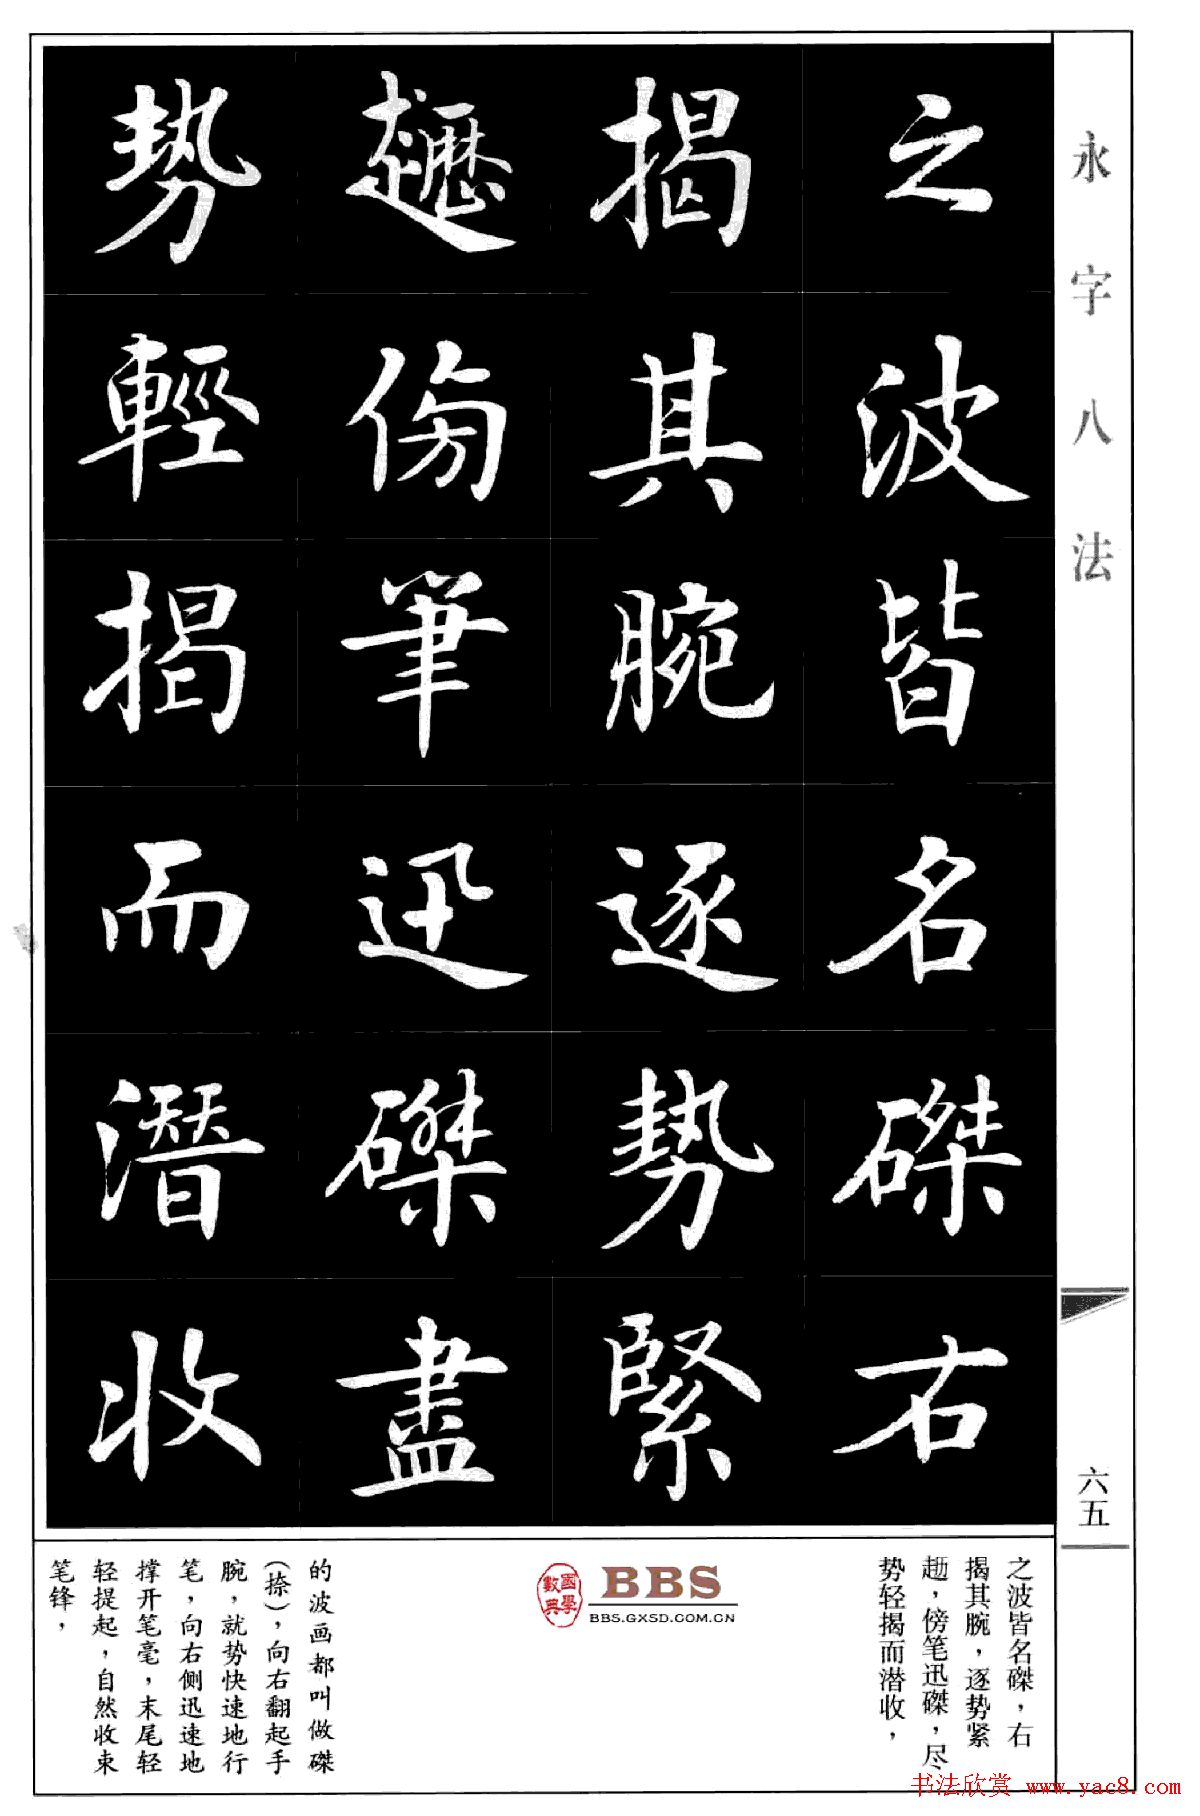 永字八法
之波皆名磔右
揭其腕逐势緊
傍筆迅磔盡
势輕揭而潛收
六五
之波皆名磔，右
揭其腕，逐势紧
傍笔迅磔，尽
势轻揭而潜收，
國學
數典
BBS
BBS.GXSD.COM.CN
的波画都叫做磔
（捺），向右翻起手
腕，就势快速地行
笔，向右侧迅速地
撑开笔毫，末尾轻
轻提起，自然收束
笔锋，
书法欣赏 www.yac8.com